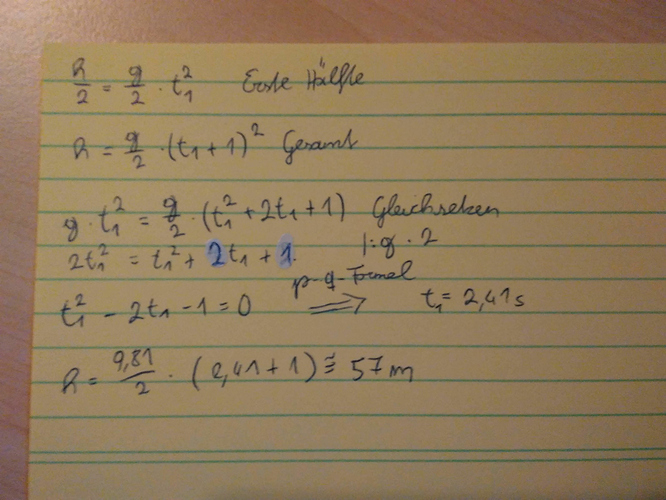 h/2 = g/2 · t₁² Erste Hälfte
h = g/2 · (t₁ + 1)² Gesamt
g · t₁² = g/2 · (t₁² + 2t₁ + 1) Gleichsetzen
2t₁² = t₁² + 2t₁ + 1. |:g · 2
t₁² - 2t₁ - 1 = 0 p-q-Formel ⟹ t₁ = 2,41s
h = 9,81/2 · (2,41 + 1)² ≅ 57 m